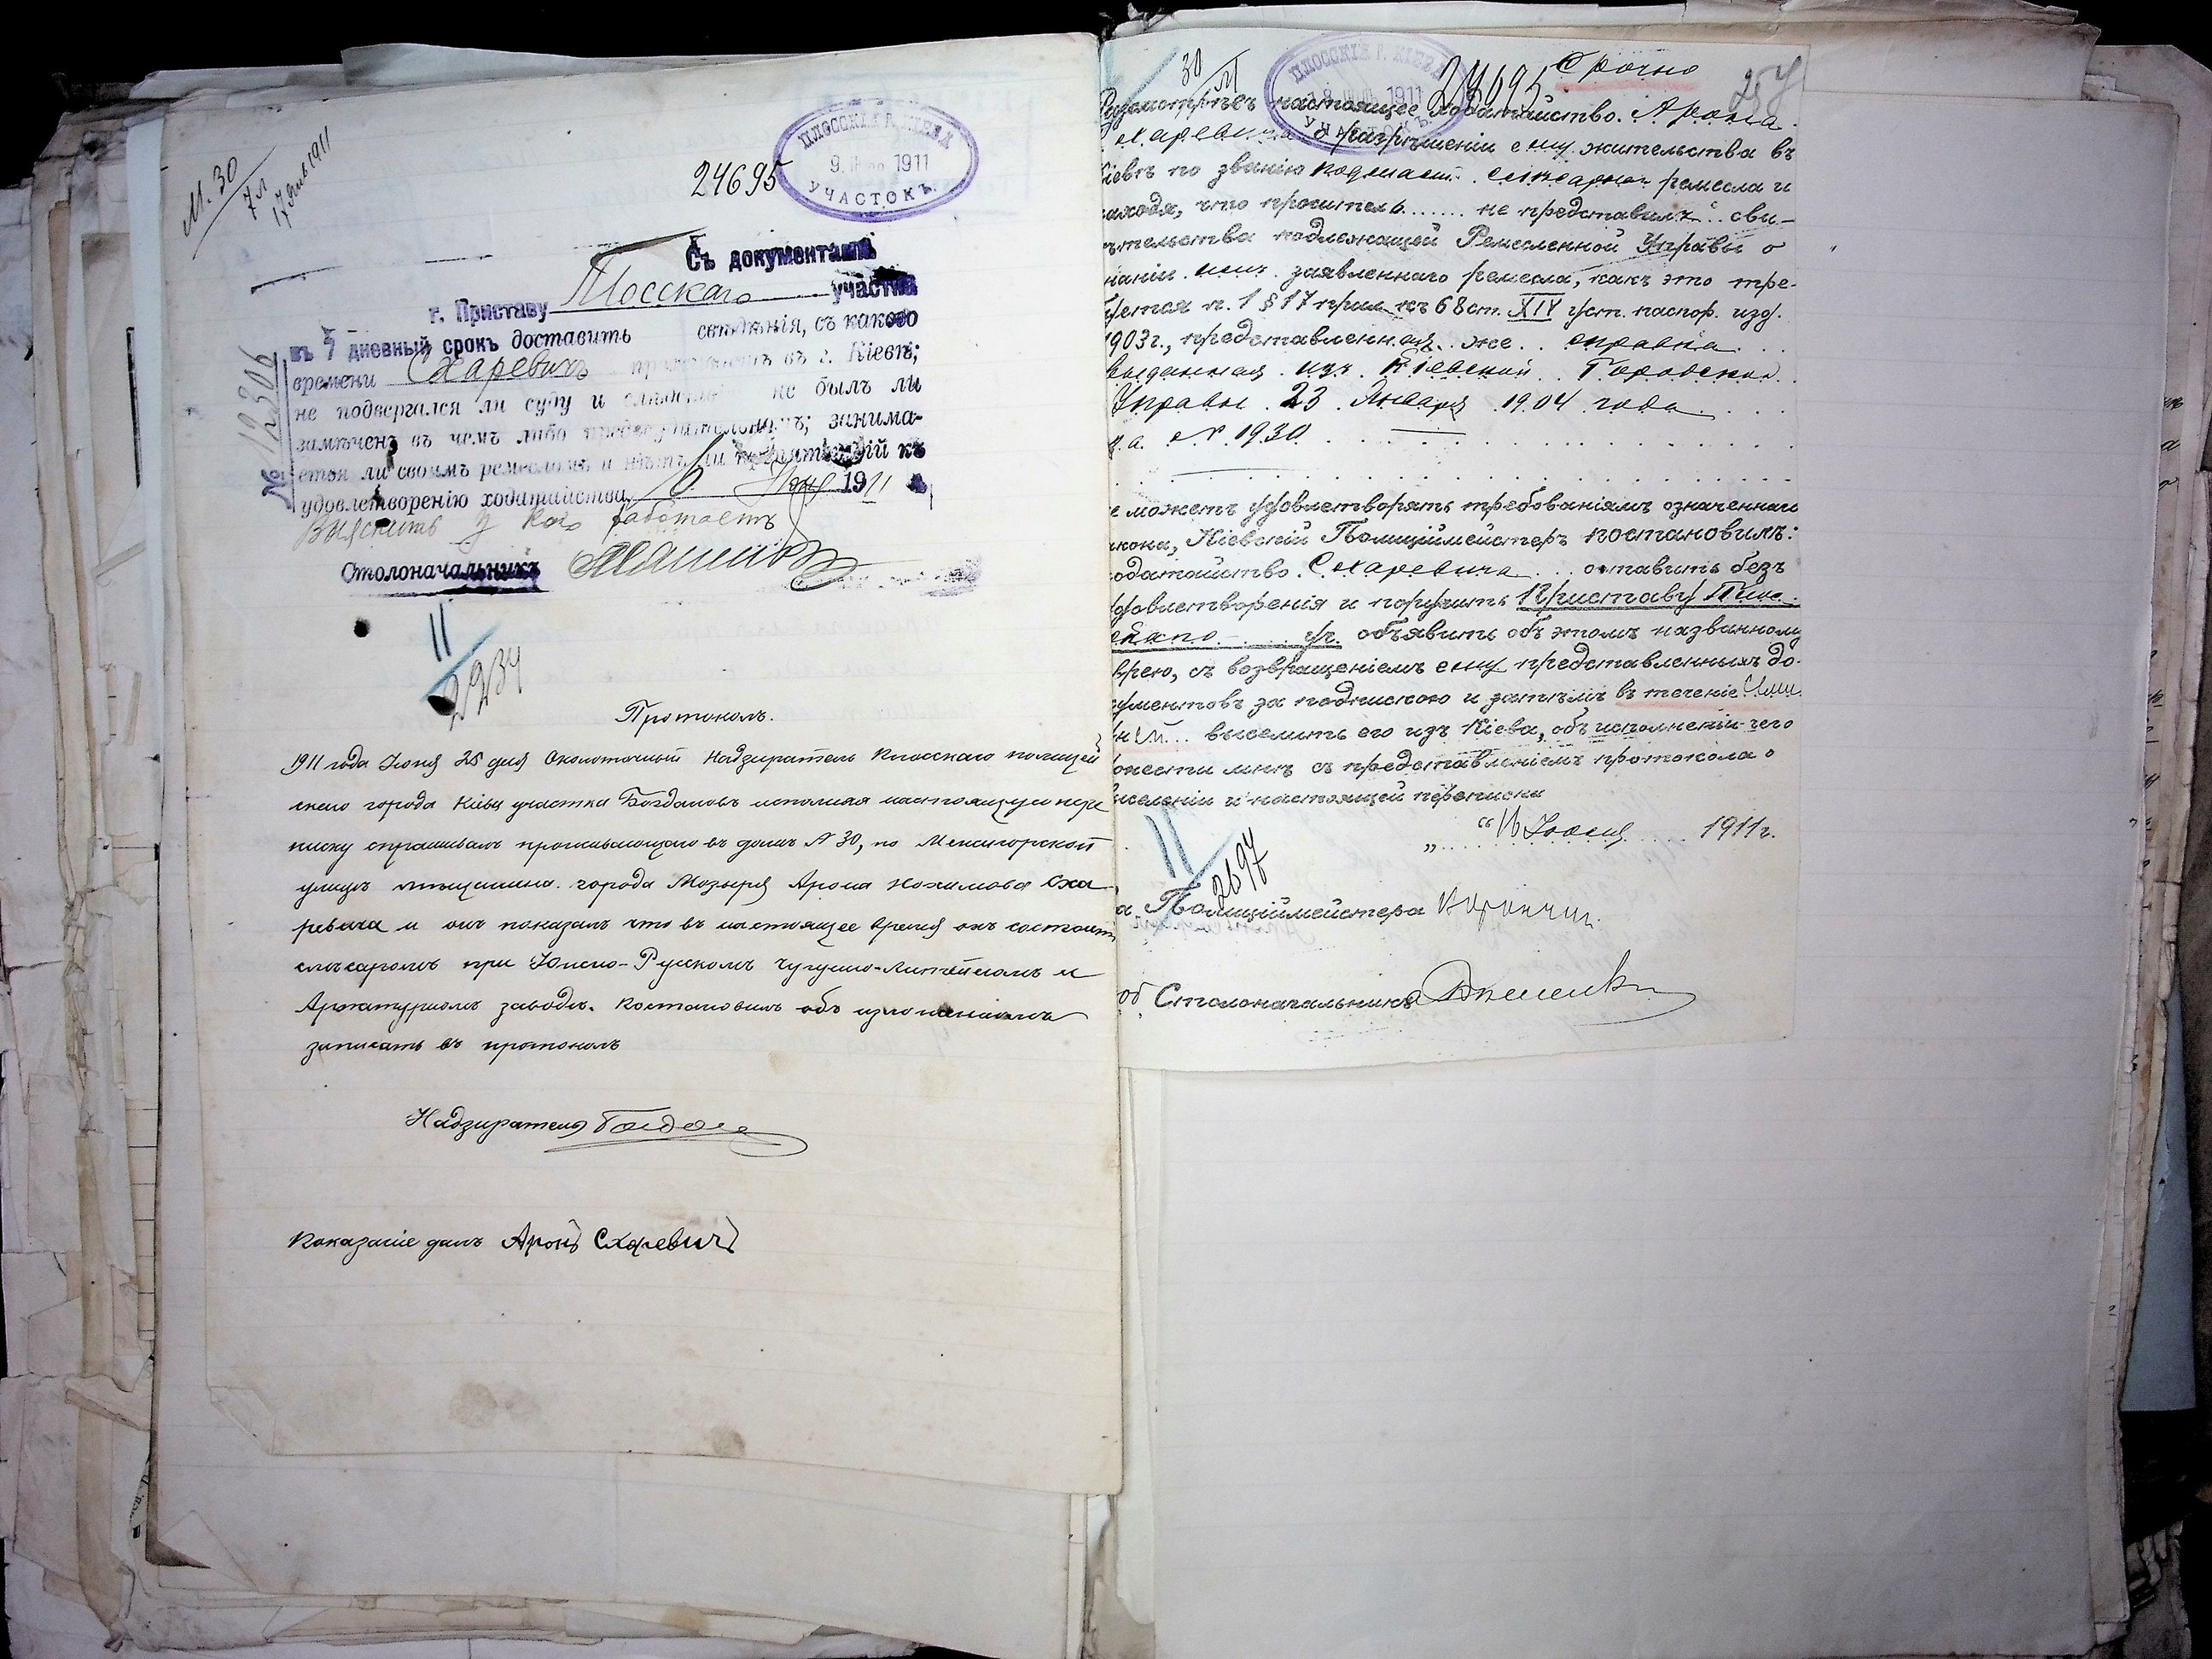 М. 30
7 л
24695
ПЛОССКІЙ Г. КІЕВА
9. 1911
УЧАСТОКЪ.
Съ документами.
г. Приставу Плосскаго участка
въ 7 дневный срокъ доставить свѣдѣнія, съ какого
времени Схаревичъ проживаетъ въ г. Кіевѣ;
не подвергался ли суду и не былъ ли
замѣченъ въ чемъ либо предосудительномъ; занима-
ется ли своимъ ремесломъ и нѣтъ ли препятствій къ
удовлетворенію ходатайства. 6 Іюня 1911
№ 12306
Выяснить у кого работаетъ
Столоначальникъ
11
2234
Протоколъ.
1911 года Іюня 25 дня Околоточный Надзиратель Плосскаго полицей
скаго города Кіева участка Богдановъ исполняя настоящую пере
писку спрашивалъ проживающаго въ домѣ № 30, по Межигорской
улицѣ мѣщанина города Мозыря Арона Нохимова Сха
ревича и онъ показалъ что въ настоящее время онъ состоитъ
слѣсаремъ при Южно-Русскомъ чугунно-литейномъ и
Арматурномъ заводѣ. Постановилъ объ изложенномъ
записать въ протоколъ
Надзиратель
Показаніе далъ Аронъ Схаревичъ
30
24695 Срочно
ПЛОССКІЙ Г. КІЕВА
1911
УЧАСТОКЪ
Разсмотрѣвъ настоящее ходатайство Арона
Схаревича о разрѣшеніи ему жительства въ
Кіевѣ по званію подмаст. слѣсарнаго ремесла и
находя, что проситель не представилъ сви-
ѣтельства подлежащей Ремесленной Управы о
знаніи имъ заявленнаго ремесла, какъ это тре-
буется п. 1 § 17 прил. къ 68 ст. XIV уст. паспор. изд.
1903 г., представленная же справка
выданная изъ Кіевской Городской
Управы 23 Января 1904 года
з.а. № 1930
е можетъ удовлетворять требованіямъ означеннаго
закона, Кіевскій Полиціймейстеръ постановилъ:
ходатайство Схаревича оставить безъ
удовлетворенія и поручить Приставу Плос-
скаго уч. объявить объ этомъ названному
еврею, съ возвращеніемъ ему представленныхъ до-
кументовъ за подпискою и затѣмъ въ теченіе
дней выселить его изъ Кіева, объ исполненіи чего
донести мнѣ съ представленіемъ протокола о
выселеніи и настоящей переписки
"16" Іюля 1911 г.
11
2697
а. Полиціймейстера
об. Столоначальника